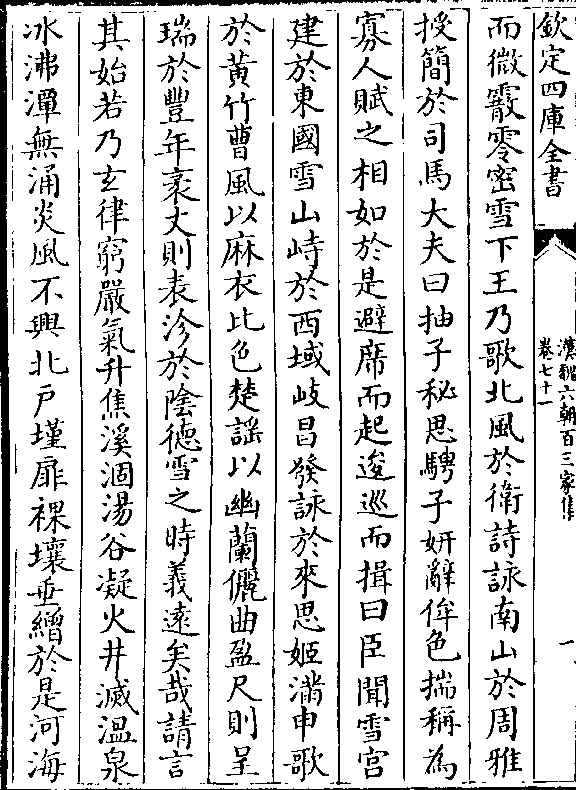 欽定四庫全書
漢魏六朝百三家集
卷七十一
一
而微霰零密雪下王乃歌北風於衛詩詠南山於周雅
授簡於司馬大夫曰抽子秘思騁子妍辭侔色揣稱為
寡人賦之相如於是避席而起逡巡而揖曰臣聞雪宮
建於東國雪山峙於西域岐昌發詠於來思姬滿申歌
於黃竹曹風以麻衣比色楚謡以幽蘭儷曲盈尺則呈
瑞於豐年袤丈則表沴於陰德雪之時義遠矣哉請言
其始若乃玄律窮嚴氣升焦溪涸湯谷凝火井滅温泉
冰沸潭無涌炎風不興北戶墐扉裸壤垂繒於是河海